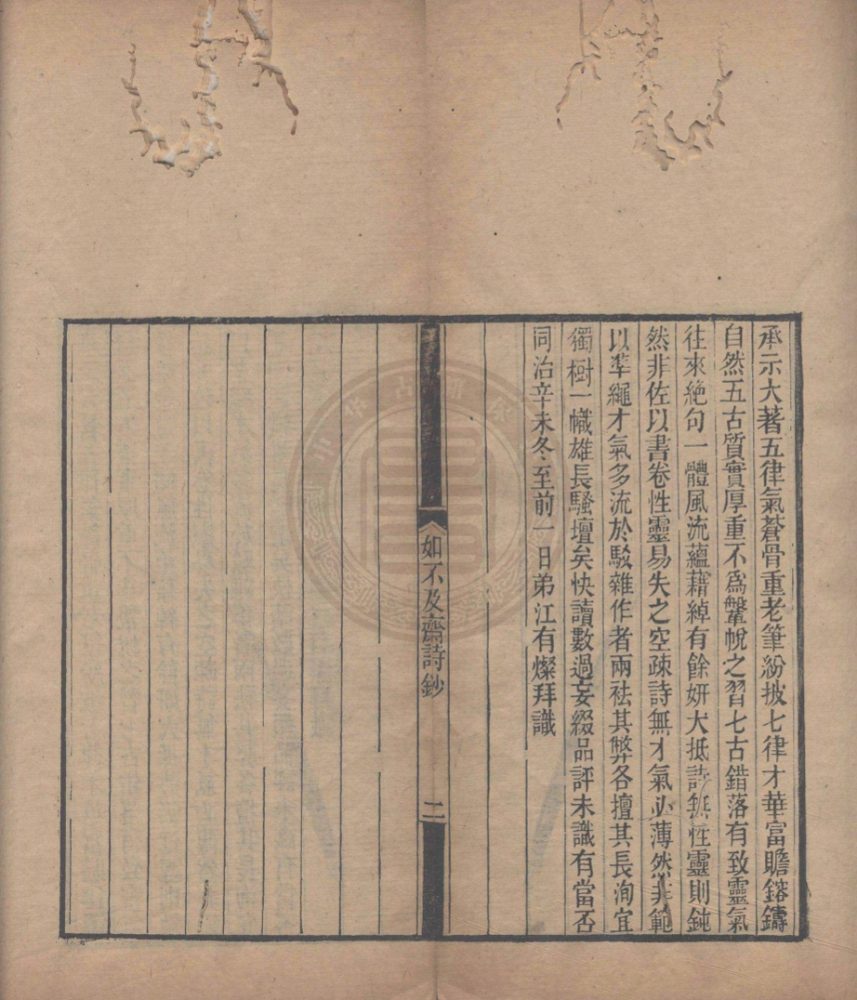 承示大著五律氣蒼骨重老筆紛披七律才華富贍鎔鑄
自然五古質實厚重不爲鞶帨之習七古錯落有致靈氣
往來絶句一體風流蘊藉綽有餘妍大抵詩無性靈則鈍
然非佐以書卷性靈易失之空疎詩無才氣必薄然非範
以準繩才氣多流於駁雜作者兩祛其弊各擅其長洵宜
獨樹一幟雄長騷壇矣快讀數過妄綴品評未識有當否
同治辛未冬至前一日弟江有燦拜識
如不及齋詩鈔
二